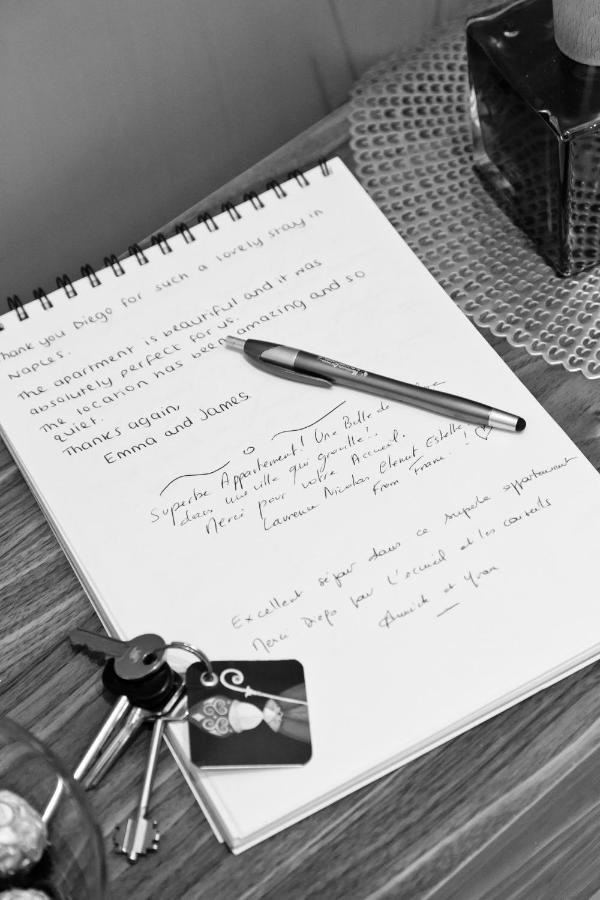 Thank you Diego for such a lovely stay in
Naples.
The apartment is beautiful and it was
absolutely perfect for us.
The location has been amazing and so
quiet.
Thanks again,
Emma and James
Superbe Appartement! Une Bulle de
dans une ville qui grouille!!
Merci pour votre Accueil.
Laurence Nicolas Estelle
From France !
Excellent séjour dans ce superbe appartement
Merci Diego pour l'accueil et les conseils
Annick et Yvan